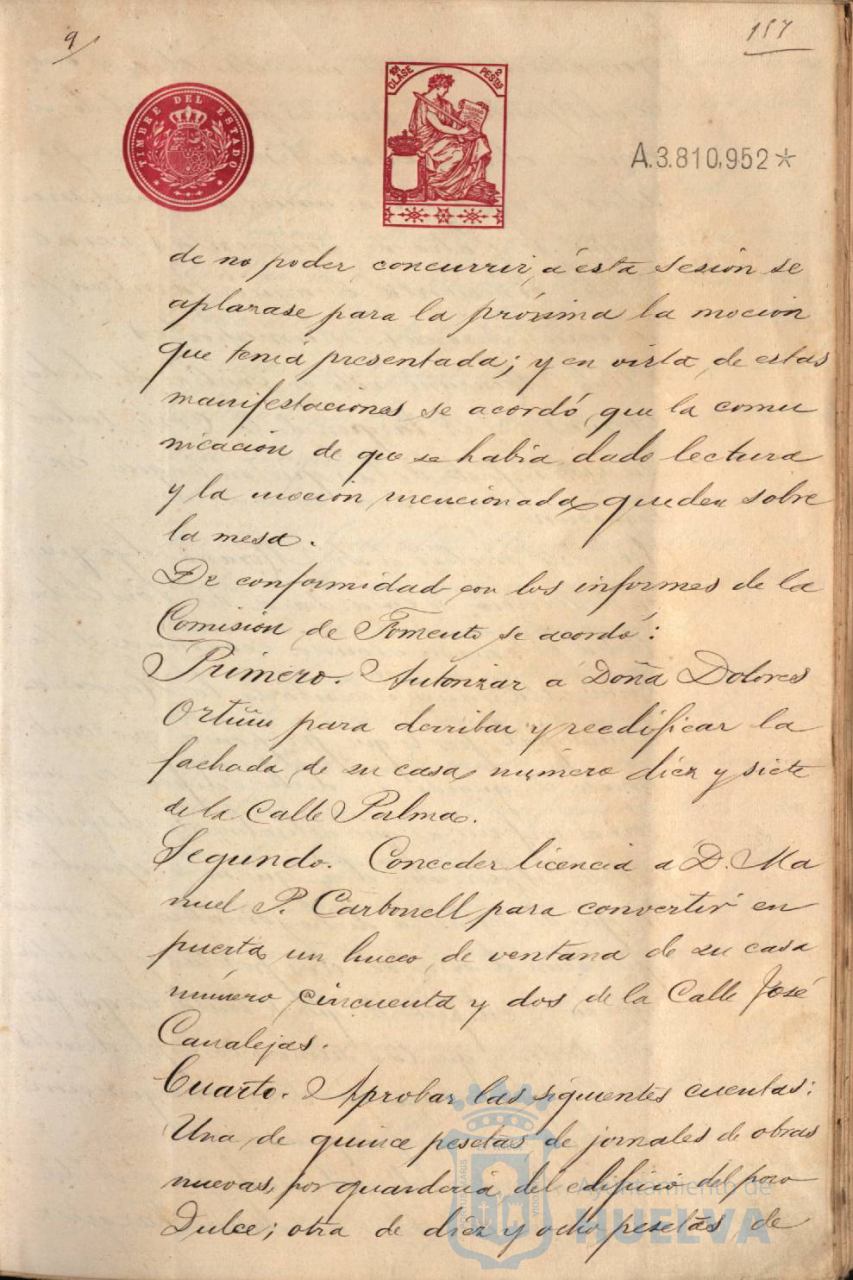 9
157
TIMBRE DEL ESTADO
10ª CLASE 2 PESTAS
A.3.810,952*
de no poder concurrir á esta sesión se
aplazase para la próxima la moción
que tenia presentada; y en vista de estas
manifestaciones se acordó que la comu
nicación de que se habia dado lectura
y la moción mencionada queden sobre
la mesa.
De conformidad con los informes de la
Comisión de Fomento se acordó:
Primero. Autorizar a Doña Dolores
Ortiño para derribar y reedificar la
fachada de su casa número diez y siete
de la Calle Palma.
Segundo. Conceder licencia a D. Ma
nuel P. Carbonell para convertir en
puerta un hueco de ventana de su casa
número cincuenta y dos de la Calle José
Canalejas.
Cuarto. Aprobar las siguientes cuentas:
Una de quince pesetas de jornales de obras
nuevas, por guarderia del edificio del pozo
Dulce; otra de diez y ocho pesetas de
Ayuntamiento de
HUELVA